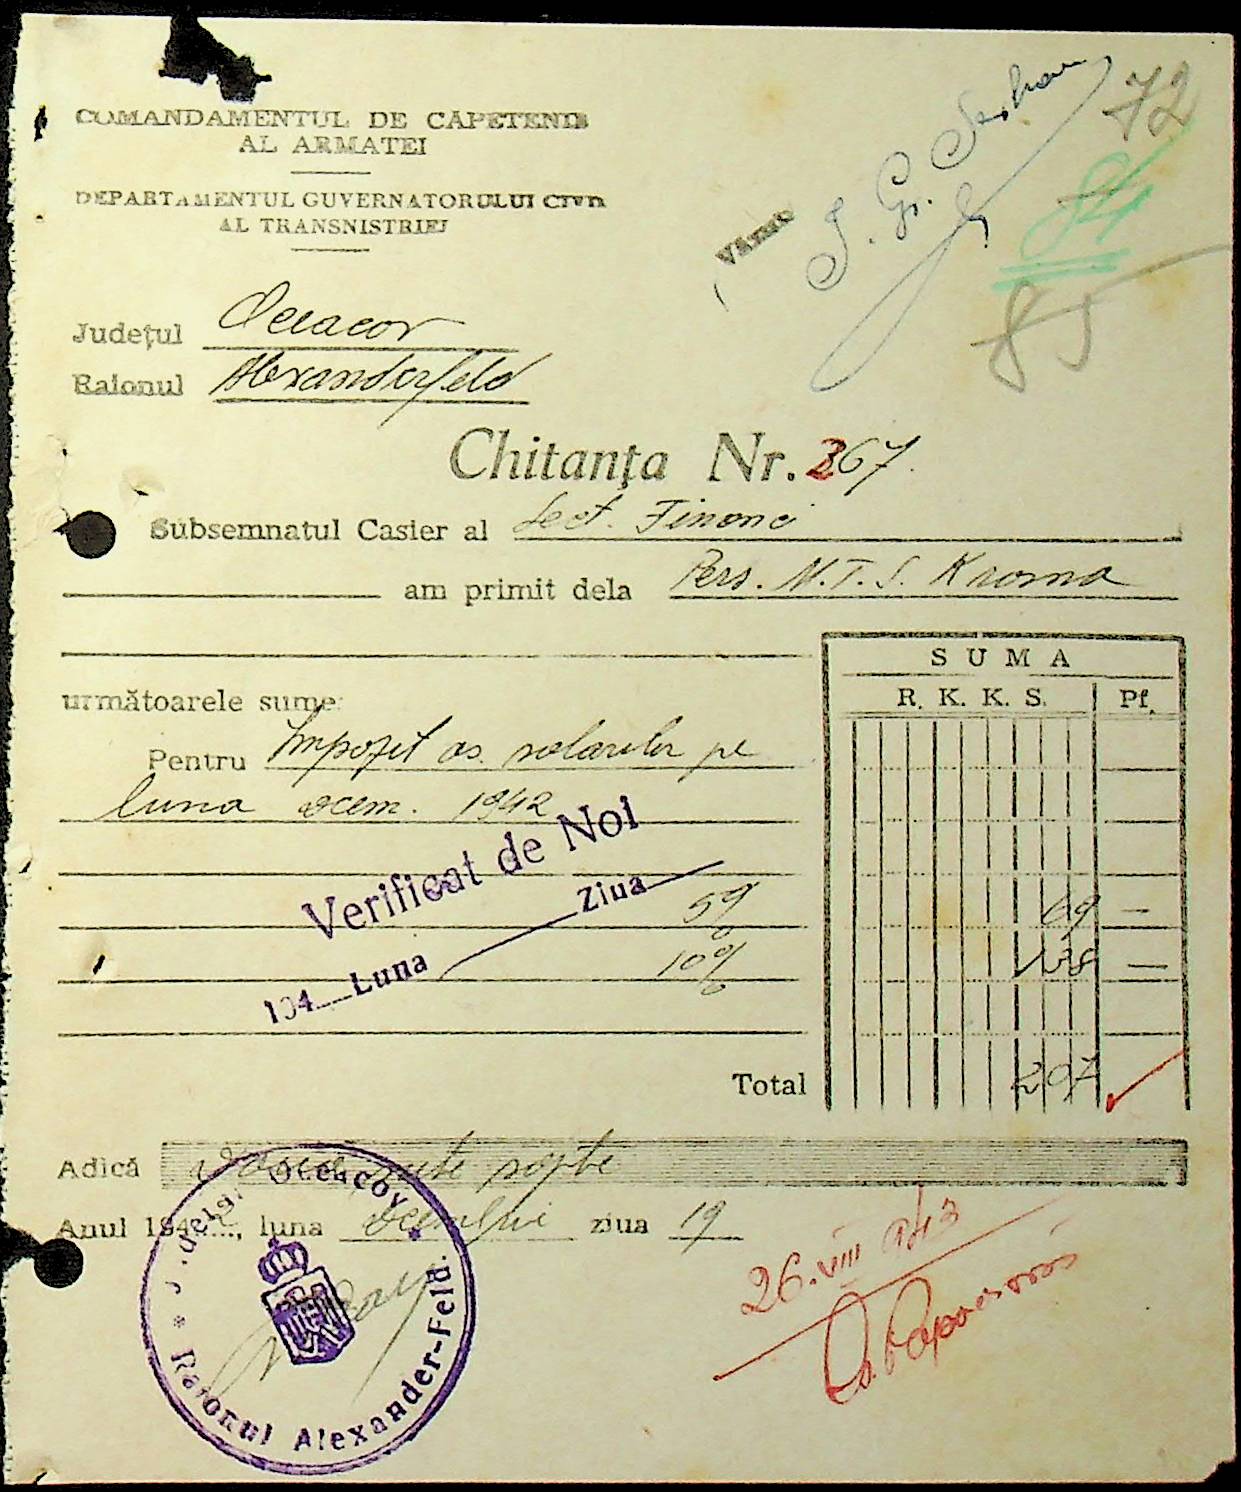 COMANDAMENTUL DE CAPETENIE
AL ARMATEI
DEPARTAMENTUL GUVERNATORULUI CIVIL
AL TRANSNISTRIEI
72
84
85
Județul Oceacov
Raionul Alexanderfeld
Chitanța Nr. 367.
Subsemnatul Casier al Sect. Financ
am primit dela Pers. M.T.S. Krona
SUMA
următoarele sume: R. K. K. S. Pf.
Pentru Impozit as. salariilor pe
luna Decem. 1942
Verificat de Noi
194 Luna Ziua
5% 69 —
10% 138 —
Total 207
Adică Două sute șapte
Anul 194, luna Decembrie ziua 19
26.VIII 943
Județul Oceacov * Raionul Alexander-Feld. *